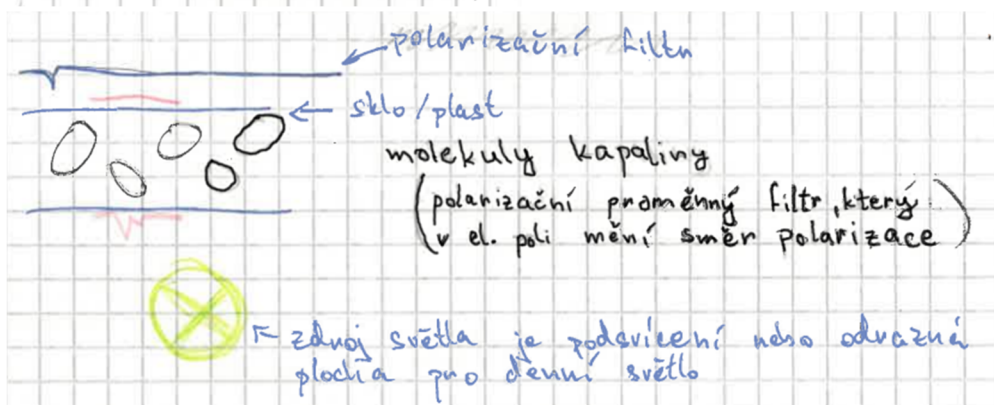 polarizační filtr
sklo/plast
molekuly kapaliny
(polarizační proměnný filtr, který
v el. poli mění směr polarizace)
zdroj světla je podsvícení nebo odrazná
plocha pro denní světlo